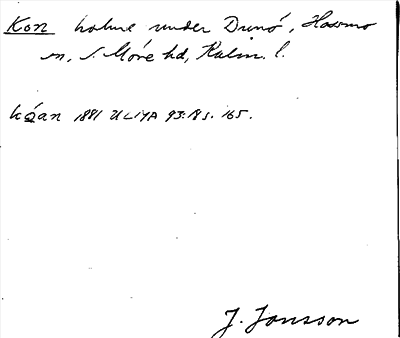 Kon holme under Dunö, Hossmo
sn, S. Möre hd, Kalm. l.
kóan 1881 ULMA 93:18 s. 165.
J. Jonsson